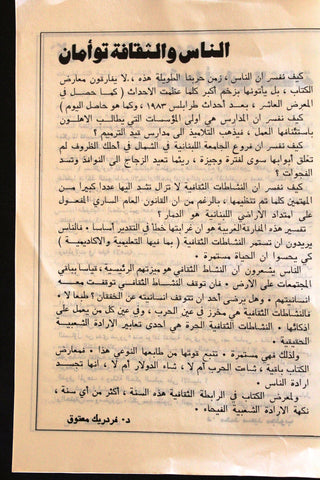 الناس والثقافة توأمان
كيف نفسر ان الناس ، زمن حربنا الطويلة هذه ، لا يفارقون معارض
الكتاب ، بل يأتونها بزخم أكبر كلما عظمت الاحداث ( كما حصل في
المعرض العاشر ، بعد أحداث طرابلس ١٩٨٣ ، وكما هو حاصل اليوم )
كيف نفسر ان المدارس هي اولى المؤسسات التي يطالب الاهلون
باستئنافها العمل ، فيذهب التلاميذ الى مدارس قيد الترميم ؟
كيف نفسر ان فروع الجامعة اللبنانية في الشمال في أحلك الظروف لم
تغلق أبوابها سوى لفترة وجيزة ، ريثما تعيد الزجاج الى النوافذ وتسد
الفجوات ؟
كيف نفسر ان النشاطات الثقافية لا تزال تشد اليها عددا كبيرا من
المهتمين كلما تم تنظيمها ، بالرغم من ان القانون العام الساري المفعول
على امتداد الاراضي اللبنانية هو الدمار ؟
تفسير هذه المفارقة الغريبة هو ان غرابتها خطأ في التقدير أساسا . فالناس
يريدون ان تستمر النشاطات الثقافية ( بما فيها التعليمية والاكاديمية )
كي يحسوا ان الحياة مستمرة .
الناس يشعرون أن النشاط الثقافي هو ميزتهم الرئيسية ، قياسا بباقي
المجتمعات على الارض . فان توقف النشاط الثقافي توقفت معه
انسانيتهم . وهل يرضى أحد ان تتوقف انسانيته عن الخفقان ؟ طبعا لا .
فالنشاطات الثقافية هي مخرز في عين الحرب ، وفي عين كل من يعمل على
اذكائها . النشاطات الثقافية الحرة هي احدى تعابير الارادة الشعبية
الحقيقية .
ولذلك فهي مستمرة . تنبع قوتها من طابعها النوعي هذا . فمعارض
الكتاب باقية ، شاءت الحرب أم لا ، شاء الدولار أم لا ، انها تجسيد
ارادة الناس .
ولمعرض الكتاب في الرابطة الثقافية هذه السنة ، أكثر من أي سنة ،
نكهة الارادة الشعبية الفيحاء .
د. فردريك معتوق